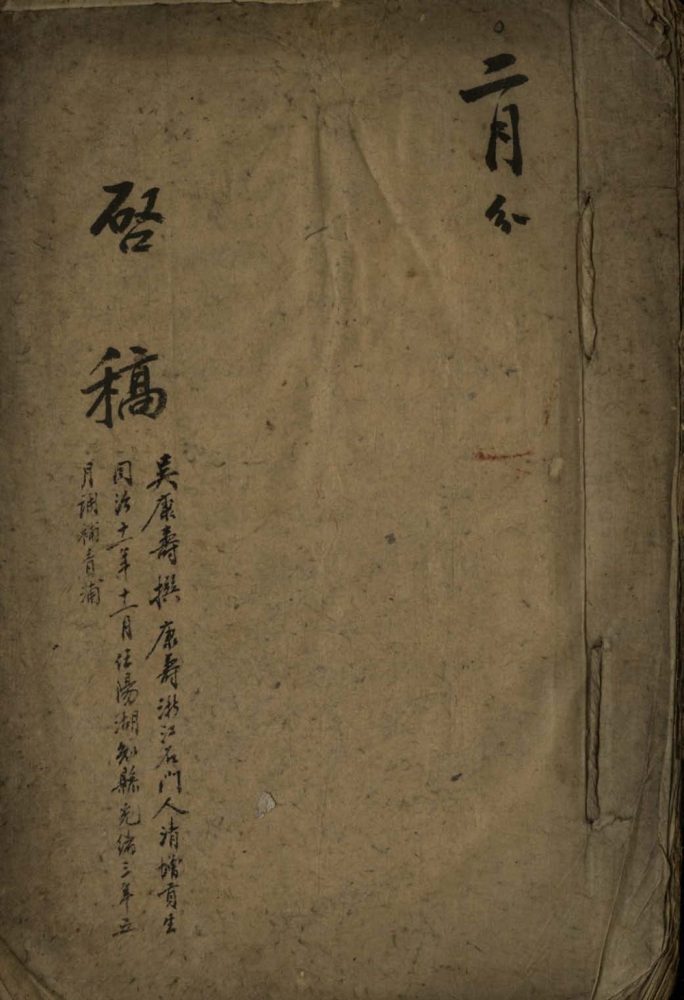 二月分
啓稿
吴康壽撰康壽浙江石门人清增貢生
同治十一年十二月任陽湖知縣光緒三年五
月調補青浦